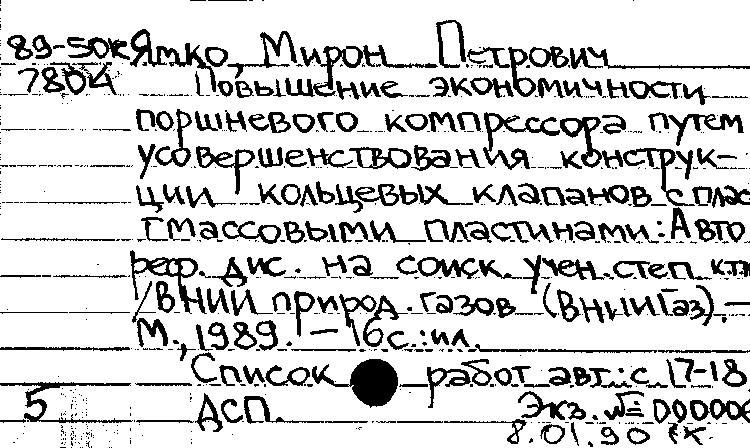 89-50к Ятко, Мирон Петрович
7804 Повышение экономичности
поршневого компрессора путем
усовершенствования конструк-
ции кольцевых клапанов с плас
тмассовыми пластинами: Авто
реф. дис. на соиск. учен. степ. к.т.н
/ВНИИ природ. газов (ВНИИГаз). —
М., 1989. — 16 с.: ил.
Список работ авт.: с. 17-18
5 ДСП. Экз. № 000006
8.01.90 ЕК